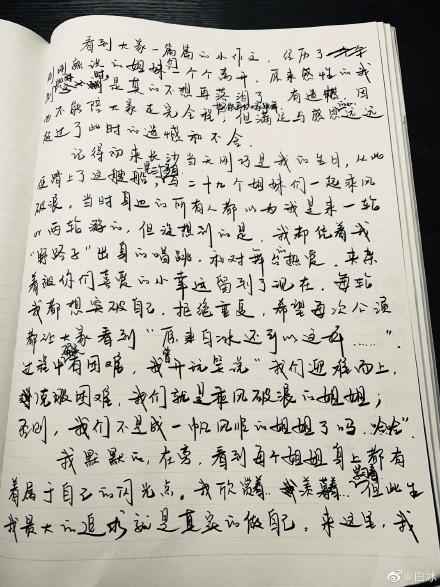 看到大家一篇篇的小作文，经历了
刚刚熟识的姐妹们一个个离开，原来感性的我
是真的不想再落泪了，有遗憾，因
为不能陪大家走完全程，但满足与感恩远远
超过了此时的遗憾和不舍。
记得初来长沙当天刚巧是我的生日，从此
便踏上了这艘船，与二十九个姐妹们一起乘风
破浪，当时身边的所有人都以为我是来一轮
两轮游的，但没想到的是，我却凭着我
出身的唱跳，和对舞台热爱，来来
着被你们喜爱的小幸运留到了现在，每轮
我都想突破自己，拒绝重复，希望每次公演
都让大家看到“原来白冰还可以这样……”。
过程中有困难，我曾开玩笑说“我们迎难而上，
克服困难，我们就是乘风破浪的姐姐；
否则，我们不是成一帆风顺的姐姐了吗，哈哈”。
我默默的，在旁，看到每个姐姐身上都有
着属于自己的闪光点。我欣赏着…我羡慕着…但此生
我最大的追求就是真实的做自己，来这里，我
@白冰